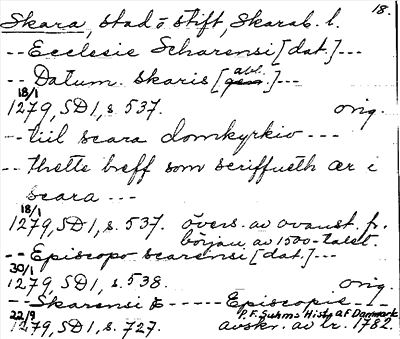 18.
Skara, stad o stift, Skarab. l.
-- Ecclesie Scharensi [dat.] ---
-- Datum skaris [gen. abl.] ---
18/1
1279, SD1, s. 537. orig.
-- till scara domkyrkio ---
-- thætte breff som scriffueth ær i
scara ---
18/1
1279, SD1, s. 537. övers. av ovanst. fr.
början av 1500-talet.
-- Episcopo scarensi [dat.] ---
30/1
1279, SD1, s. 538. orig.
-- Skarensi ----- Episcopie ---
22/9 P. F. Suhms Hist. af Danmark
1279, SD1, s. 727. avskr. av tr. 1782.